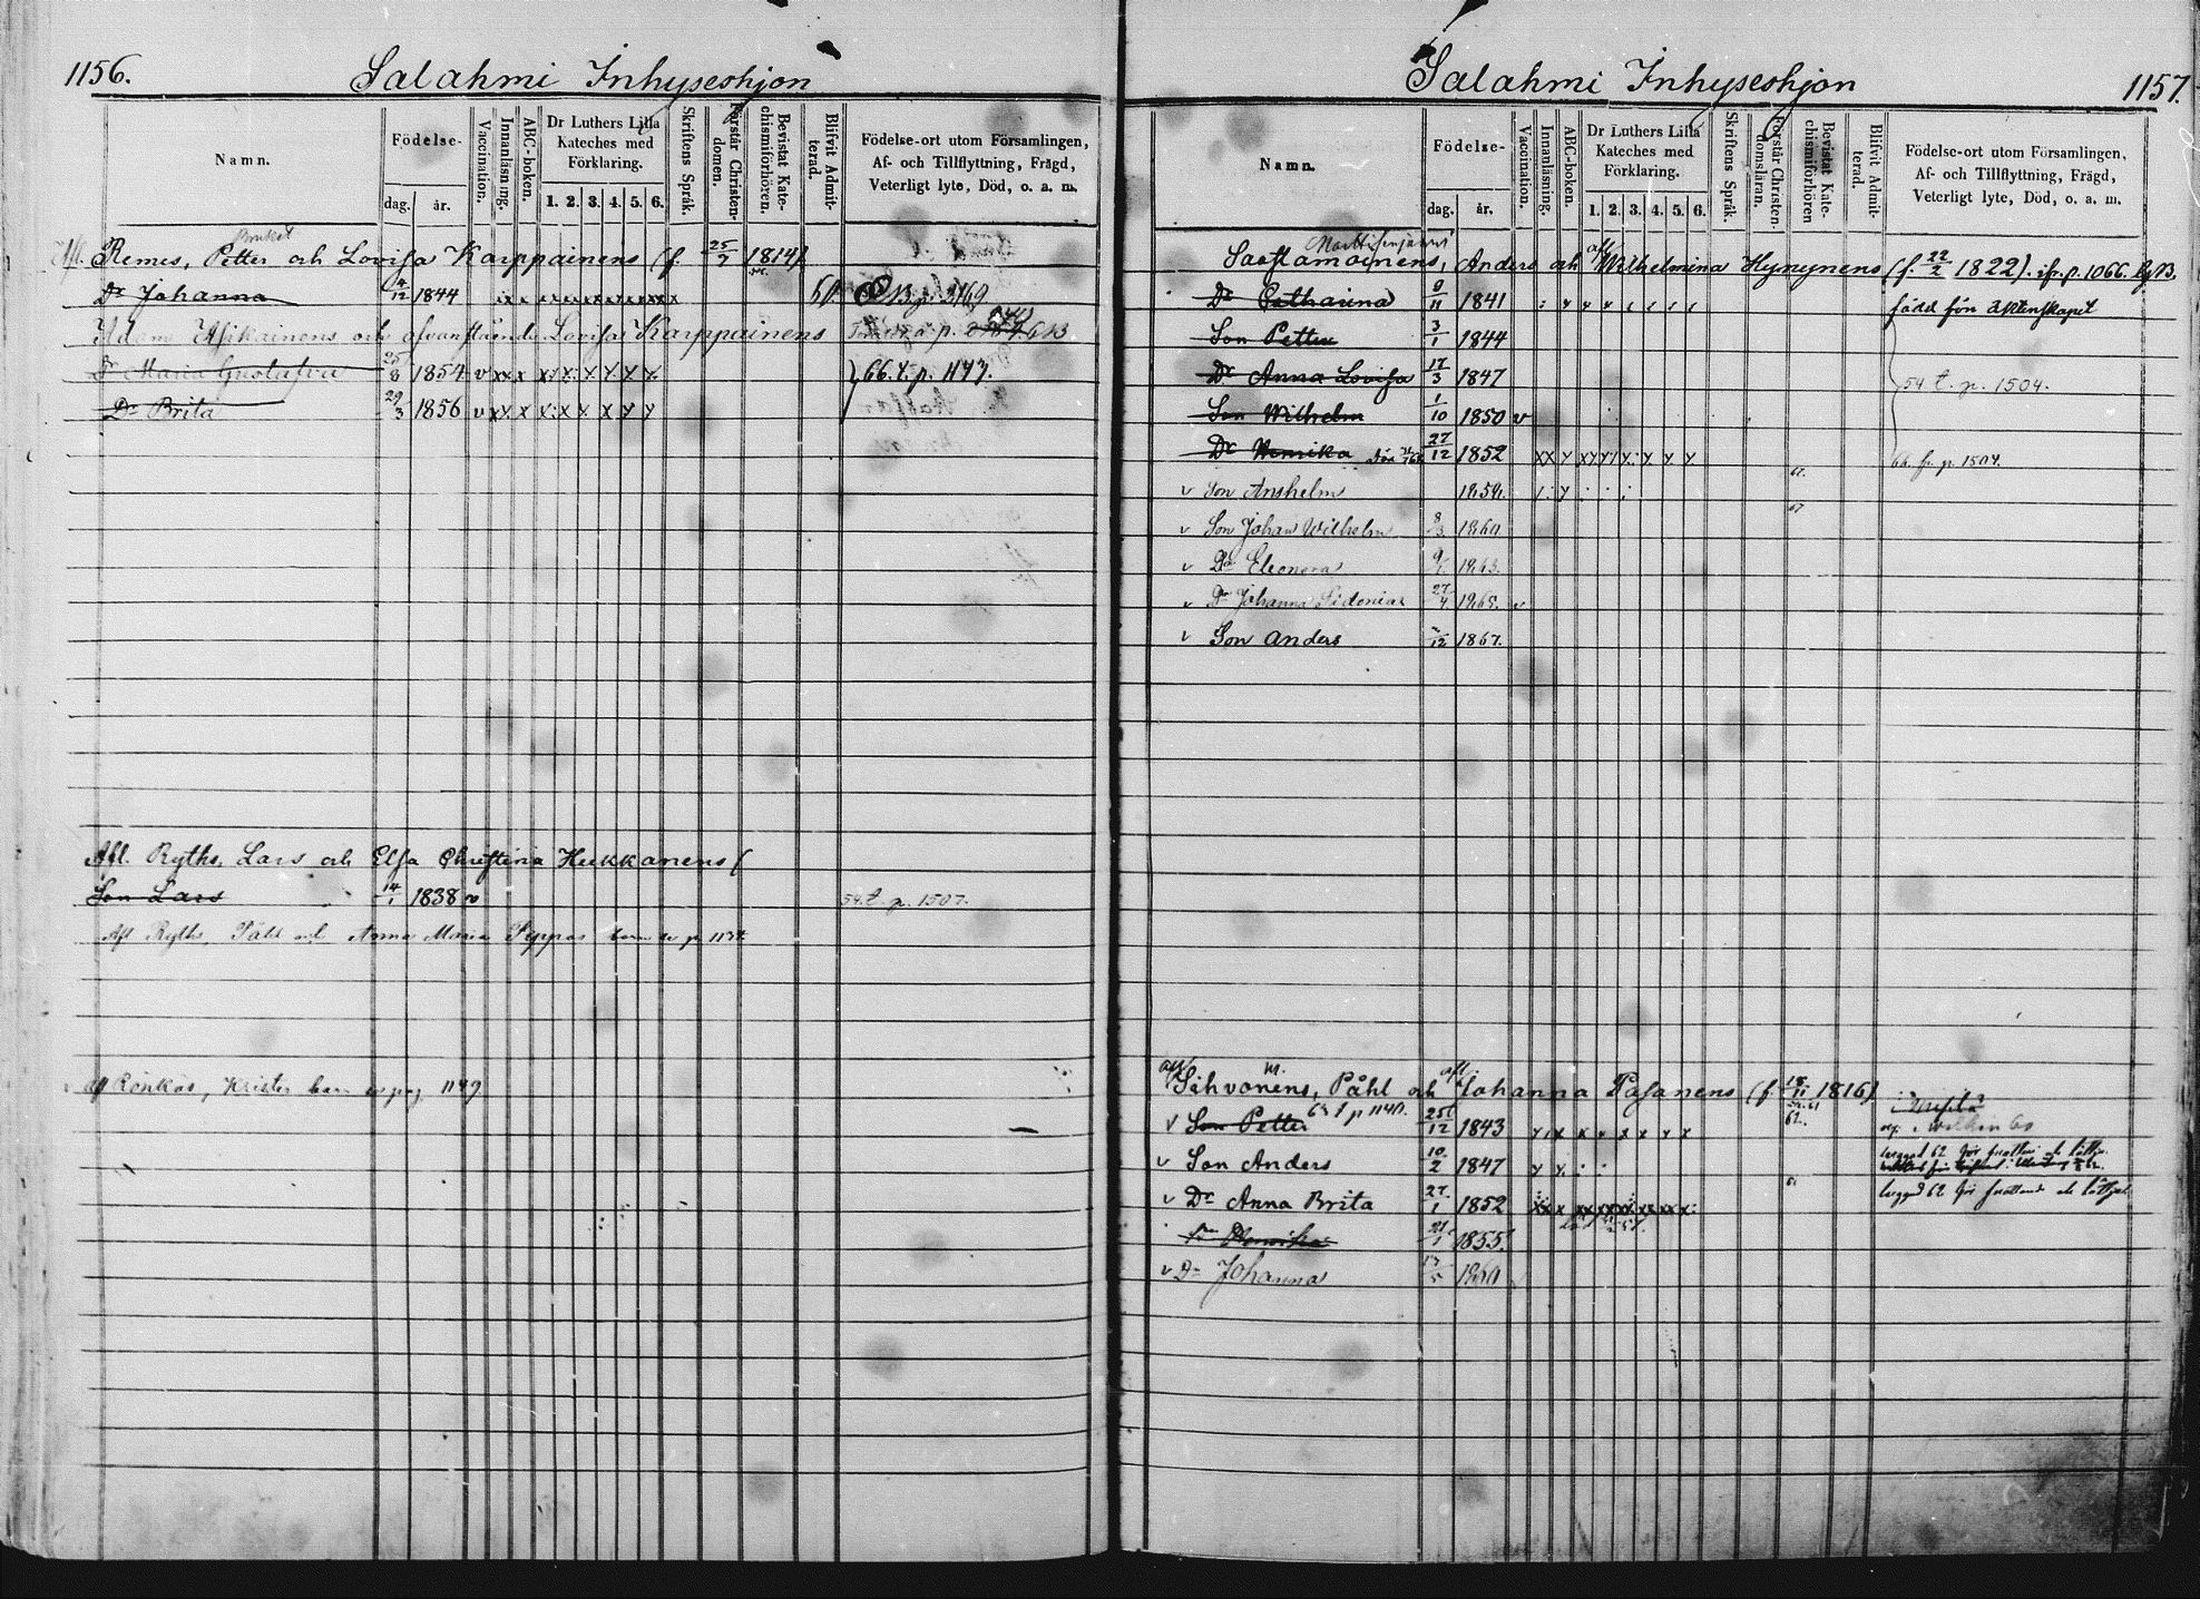 1156.
Salahmi Inhyseshjon
Namn.
Födelse-
dag.
år.
Vaccination.
Innanläsning.
ABC-boken.
Dr Luthers Lilla
Kateches med
Förklaring.
1. 2. 3. 4. 5. 6.
Skriftens Språk.
Förstår Christen-
domen.
Bevistat Kate-
chismiförhören.
Blifvit Admit-
terad.
Födelse-ort utom Församlingen,
Af- och Tillflyttning, Frägd,
Veterligt lyte, Död, o. a. m.
Afl. Remes, Petter och Lovisa Karppainens (f. 25/7 1814)
Dr Johanna 4/12 1844 60
och ofvanstående Lovisa Karppainens
Dr Maria Gustafva 25/8 1854 v 66. t. p. 1177.
Dr Brita 29/3 1856 v
Afl. Ryths, Lars och Elsa Christina Hukkanens (
Son Lars 14/1 1838 v 54. t. p. 1507.
Afl Ryths, Påhl och Anna Maria Peppos barn se p.
afl Rönkäs, Krister barn se pag 1149
1157.
Salahmi Inhyseshjon
Namn.
Födelse-
dag.
år.
Vaccination.
Innanläsning.
ABC-boken.
Dr Luthers Lilla
Kateches med
Förklaring.
1. 2. 3. 4. 5. 6.
Skriftens Språk.
Förstår Christen-
domsläran.
Bevistat Kate-
chismiförhören
Blifvit Admit-
terad.
Födelse-ort utom Församlingen,
Af- och Tillflyttning, Frägd,
Veterligt lyte, Död, o. a. m.
Saastamoinens, Anders och afl Wilhelmina Hynynens (f. 22/2 1822). ifr. p. 1066.
Dr Catharina 9/11 1841 född före äktenskapet
Son Petter 3/1 1844
Dr Anna Lovisa 17/3 1847 54 t. p. 1504.
Son Wilhelm 1/10 1850 v
Dr Henrika 27/12 1852 66. fr. p. 1504.
v Son Anshelm
v Son Johan Wilhelm 8/3 1860
v Dr Eleonora 1863.
v Dr Johanna Sidonia 27/4 1865. v
v Son Anders 1867.
afl Sihvonens, Påhl och afl. Johanna Pasanens (f. 18/11 1816)
v Son Petter 25/12 1843 62.
v Son Anders 10/2 1847
v Dr Anna Brita 27/1 1852
Dr Henrika 1855.
v Dr Johanna 1860